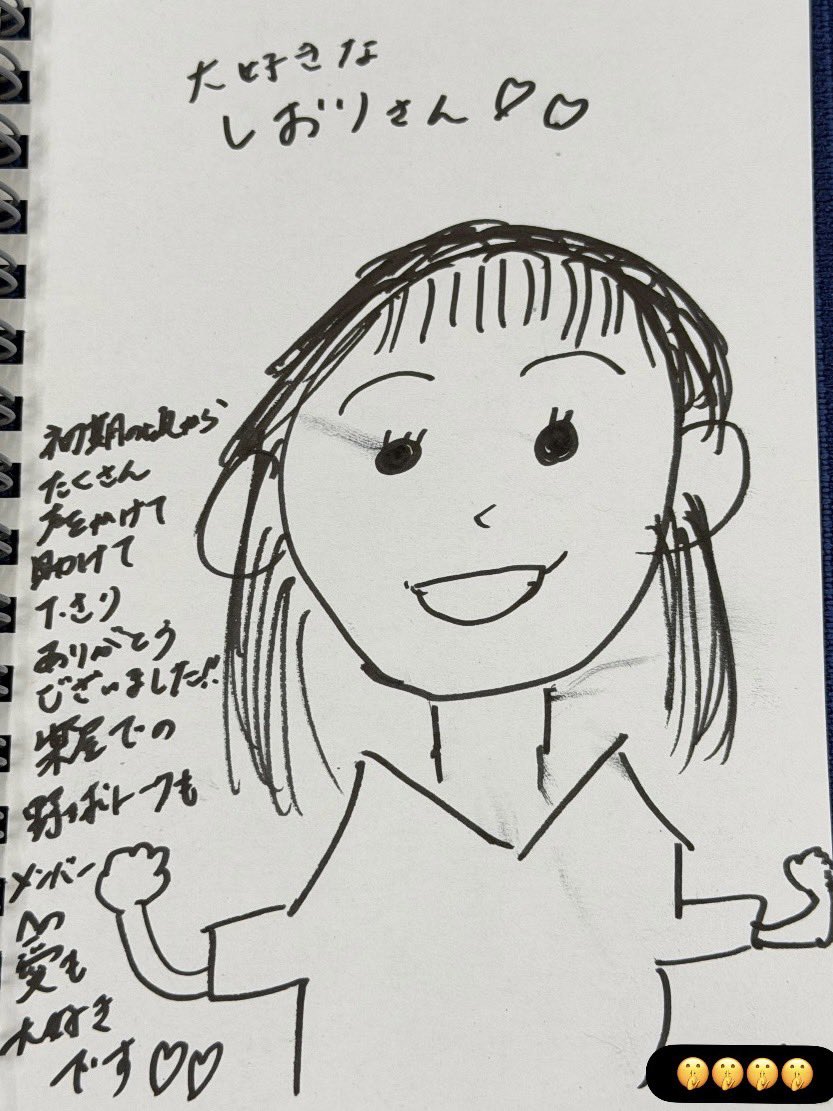 大好きな
しおりさん♡♡
初期の頃から
たくさん
声をかけて
助けて
下さり
ありがとう
ございました!!
楽屋での
野球トークも
メンバー
への
愛も
大好き
です♡♡